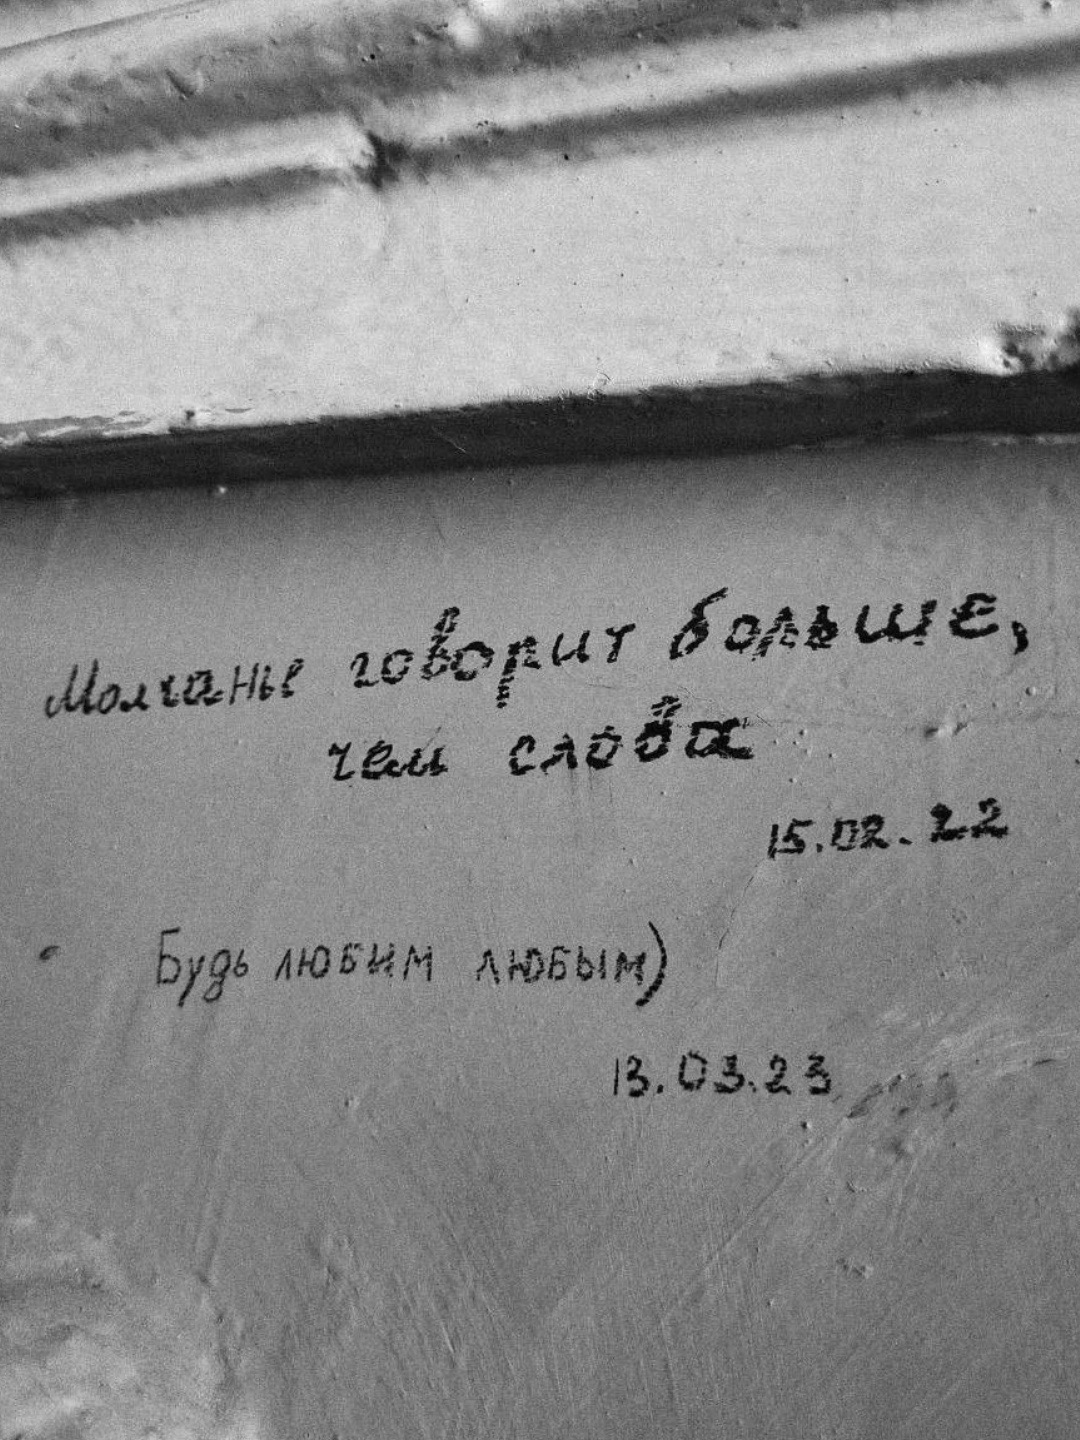 Молчанье говорит больше,
чем слова
15.02.22
Будь любим любым)
13.03.23